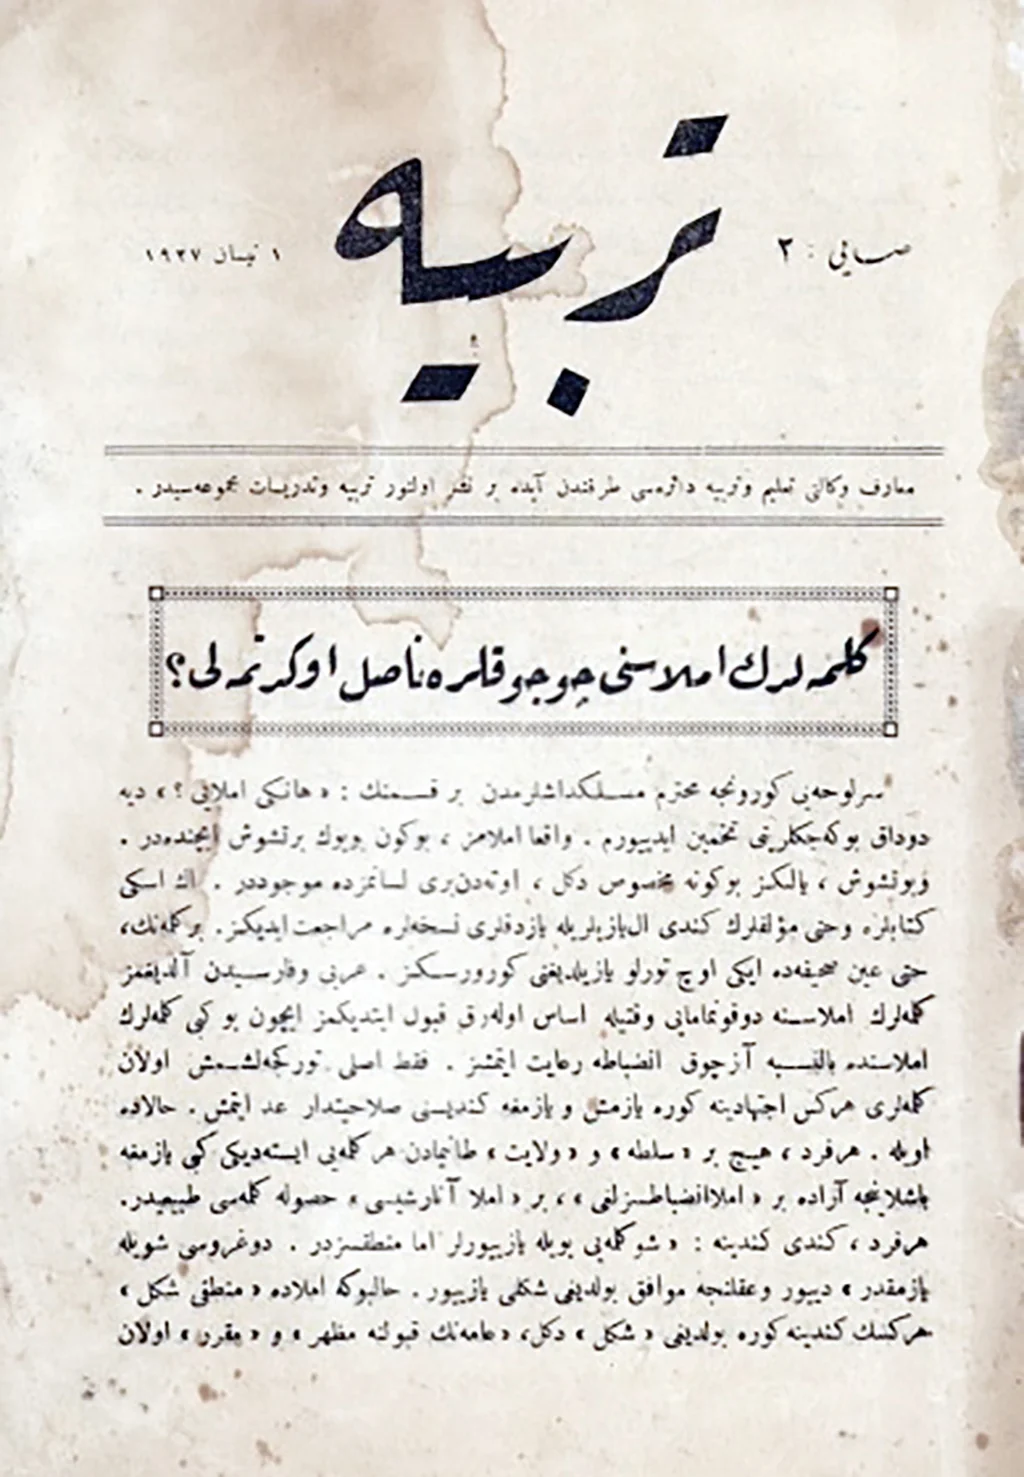 تربیه
صایی : ٢
١ نیسان ١٩٢٧
معارف وكالتی تعلیم وتربیه دائره‌سی طرفندن آیده بر نشر اولنور تربیه وتدریسات مجموعه‌سیدر .
كلمه‌لرك املاسنی چوجوقلره ناصل اوكرتمه‌لی؟
سرلوحه‌یی كورونجه محترم مسلكداشلرمدن بر قسمنك : « هانكی املایی ؟ » دیه
دوداق بوكه‌جكلرینی تخمین ایدییورم . واقعا املامز ، بوكون بویوك برتشوش ایچنده‌در .
وبوتشوش ، یالكز بوكونه مخصوص دكل ، اوته‌دن‌بری لسانمزده موجوددر . اك اسكی
كتابلره وحتی مؤلفلرك كندی ال‌یازیلریله یازدقلری نسخه‌لره مراجعت ایدیكز. بركلمه‌نك،
حتی عین صحیفه‌ده ایكی اوچ تورلو یازیلدیغنی كورورسكز . عربی وفارسیدن آلدیغمز
كلمه‌لرك املاسنه دوقونمامایی وقتیله اساس اوله‌رق قبول ایتدیكمز ایچون بو كبی كلمه‌لرك
املاسنده بالنسبه آز چوق انضباطه رعایت ایتمشز . فقط اصلی توركجه‌لشمش اولان
كلمه‌لری هركس اجتهادینه كوره یازمش و یازمغه كندیسنی صلاحیتدار عد ایتمش . حالاده
اویله . هرفرد ، هیچ بر « سلطه » و « ولایت » طانیمادن هر كلمه‌یی ایسته‌دیكی كبی یازمغه
باشلاینجه آراده بر « املاانضباطسزلغی » ، بر « املا آنارشیسی » حصوله كلمه‌سی طبیعیدر.
هرفرد ، كندی كندینه : « شو كلمه‌یی بویله یازییورلر اما منطقسزدر . دوغروسی شویله
یازمقدر » دییور وعقلنجه موافق بولدیغی شكلی یازییور . حالبوكه املاده « منطقی شكل »
هركسك كندینه كوره بولدیغی « شكل » دكل، « عامه‌نك قبولنه مظهر » و « مقرر » اولان